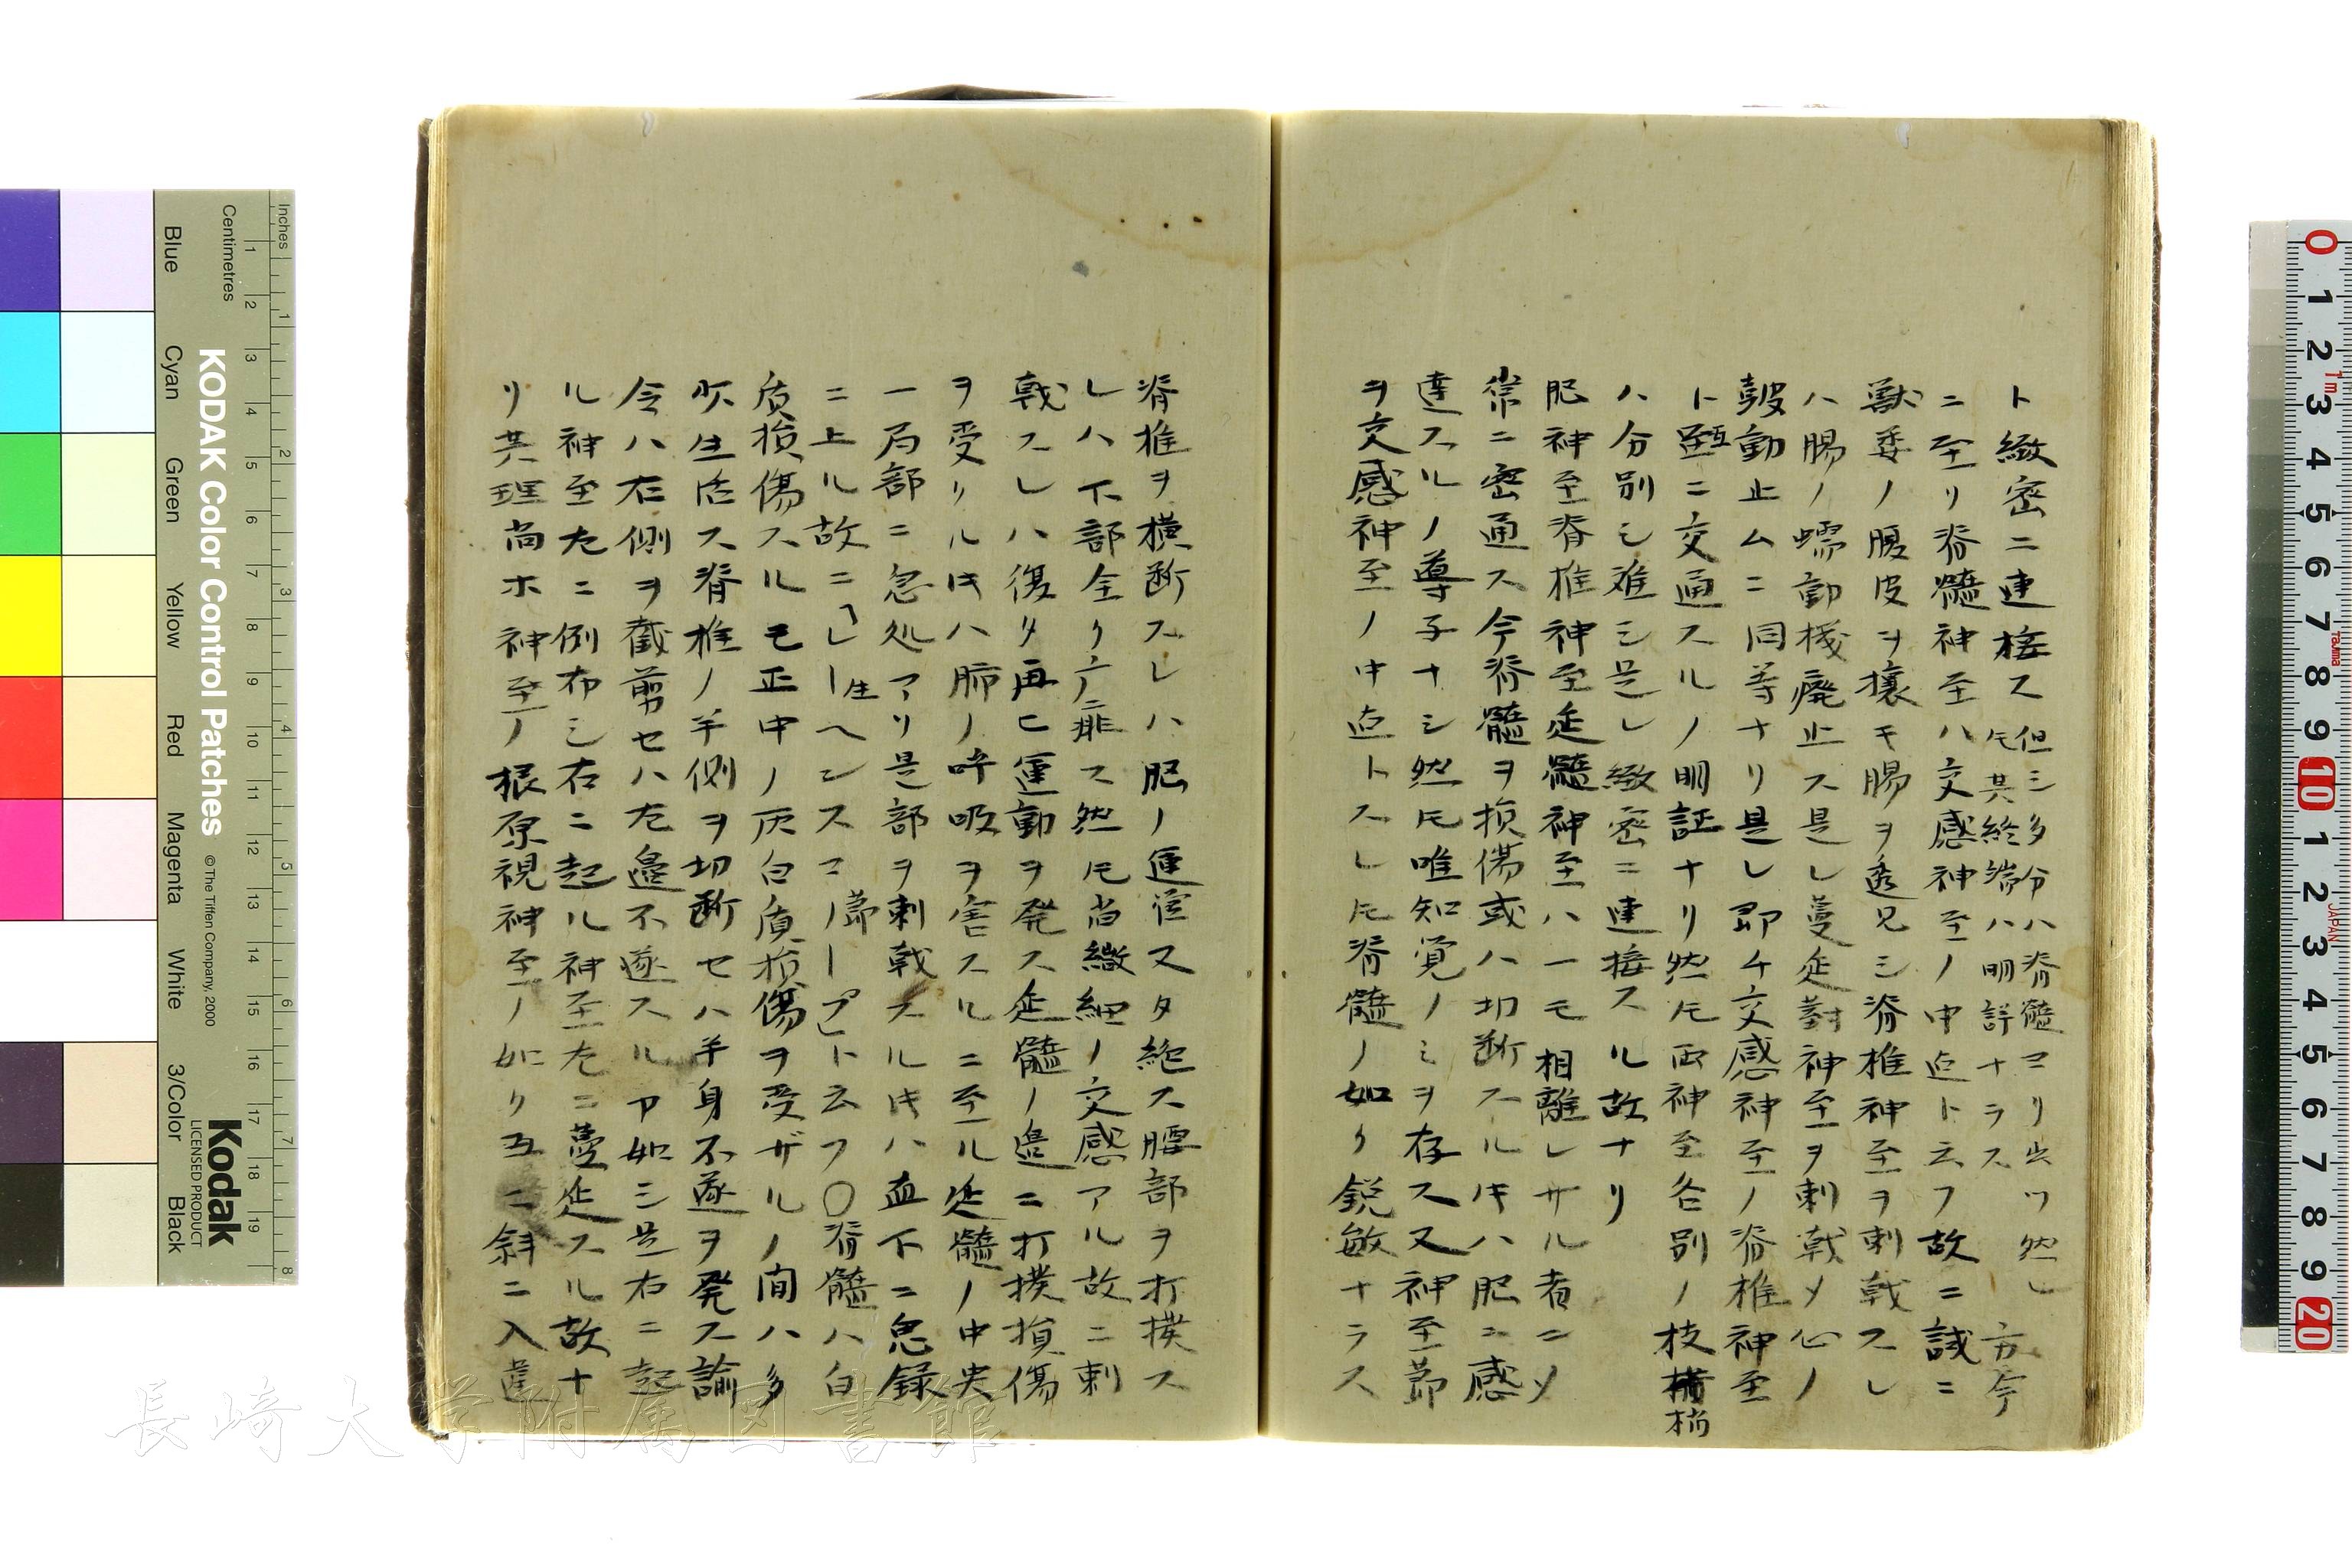 ト緻密ニ連接ス 但シ多分ハ脊髓ヨリ出ツ然レ
𪜈其終端ハ明詳ナラス 方今
ニ至リ脊髓神至ハ交感神至ノ中点ト云フ故ニ試ニ
獣委ノ腹皮ヲ攘モ腸ヲ透見シ脊椎神至ヲ刺戟スレ
ハ腸ノ蠕動機廃止ス是レ蔓延對神至ヲ刺戟メ心ノ
皷動止ムニ同等ナリ是レ即チ交感神至ノ脊椎神至
ト互ニ交通スルノ明証ナリ然𪜈両神至各別ノ枝梢
ハ分別シ难シ是レ緻密ニ連接スル故ナリ
肥神至脊椎神至延髓神至ハ一モ相離レサル者ニメ
常ニ密通ス今脊髓ヲ損傷或ハ切断スル𪜈ハ肥ニ感
達スルノ導子ナシ然𪜈唯知覚ノミヲ存ス又神至節
ヲ交感神至ノ中点トスレ𪜈脊髓ノ如ク鋭敏ナラス
脊椎ヲ横断スレハ肥ノ運営又タ絶ス腰部ヲ打撲ス
レハ下部全ク痱ス然𪜈尚纎細ノ交感アル故ニ刺
戟スレハ復タ再ヒ運動ヲ発ス延髓ノ邉ニ打撲損傷
ヲ受クル𪜈ハ肺ノ呼吸ヲ害スルニ至ル延髓ノ中央
一局部ニ急処アリ是部ヲ刺戟スル𪜈ハ血下ニ急録
ニ上ル故ニ「レー生ヘンスコノープ」節ト云フ〇脊髓ハ白
质損傷スルモ正中ノ灰白质損傷ヲ受ザルノ間ハ多
少生活ス脊椎ノ半側ヲ切断セハ半身不遂ヲ発ス諭
令ハ右側ヲ截剪セハ左邉不遂スルヿ如シ是右ニ起
ル神至左ニ例布シ右ニ起ル神至左ニ蔓延スル故ナ
リ其理尚ホ神至ノ根原視神至ノ如ク互ニ斜ニ入違
Inches
Centimetres
KODAK Color Control Patches
©The Tiffen Company, 2000
Kodak
LICENSED PRODUCT
Blue
Cyan
Green
Yellow
Red
Magenta
White
3/Color
Black
JAPAN
長崎大学附属図書館